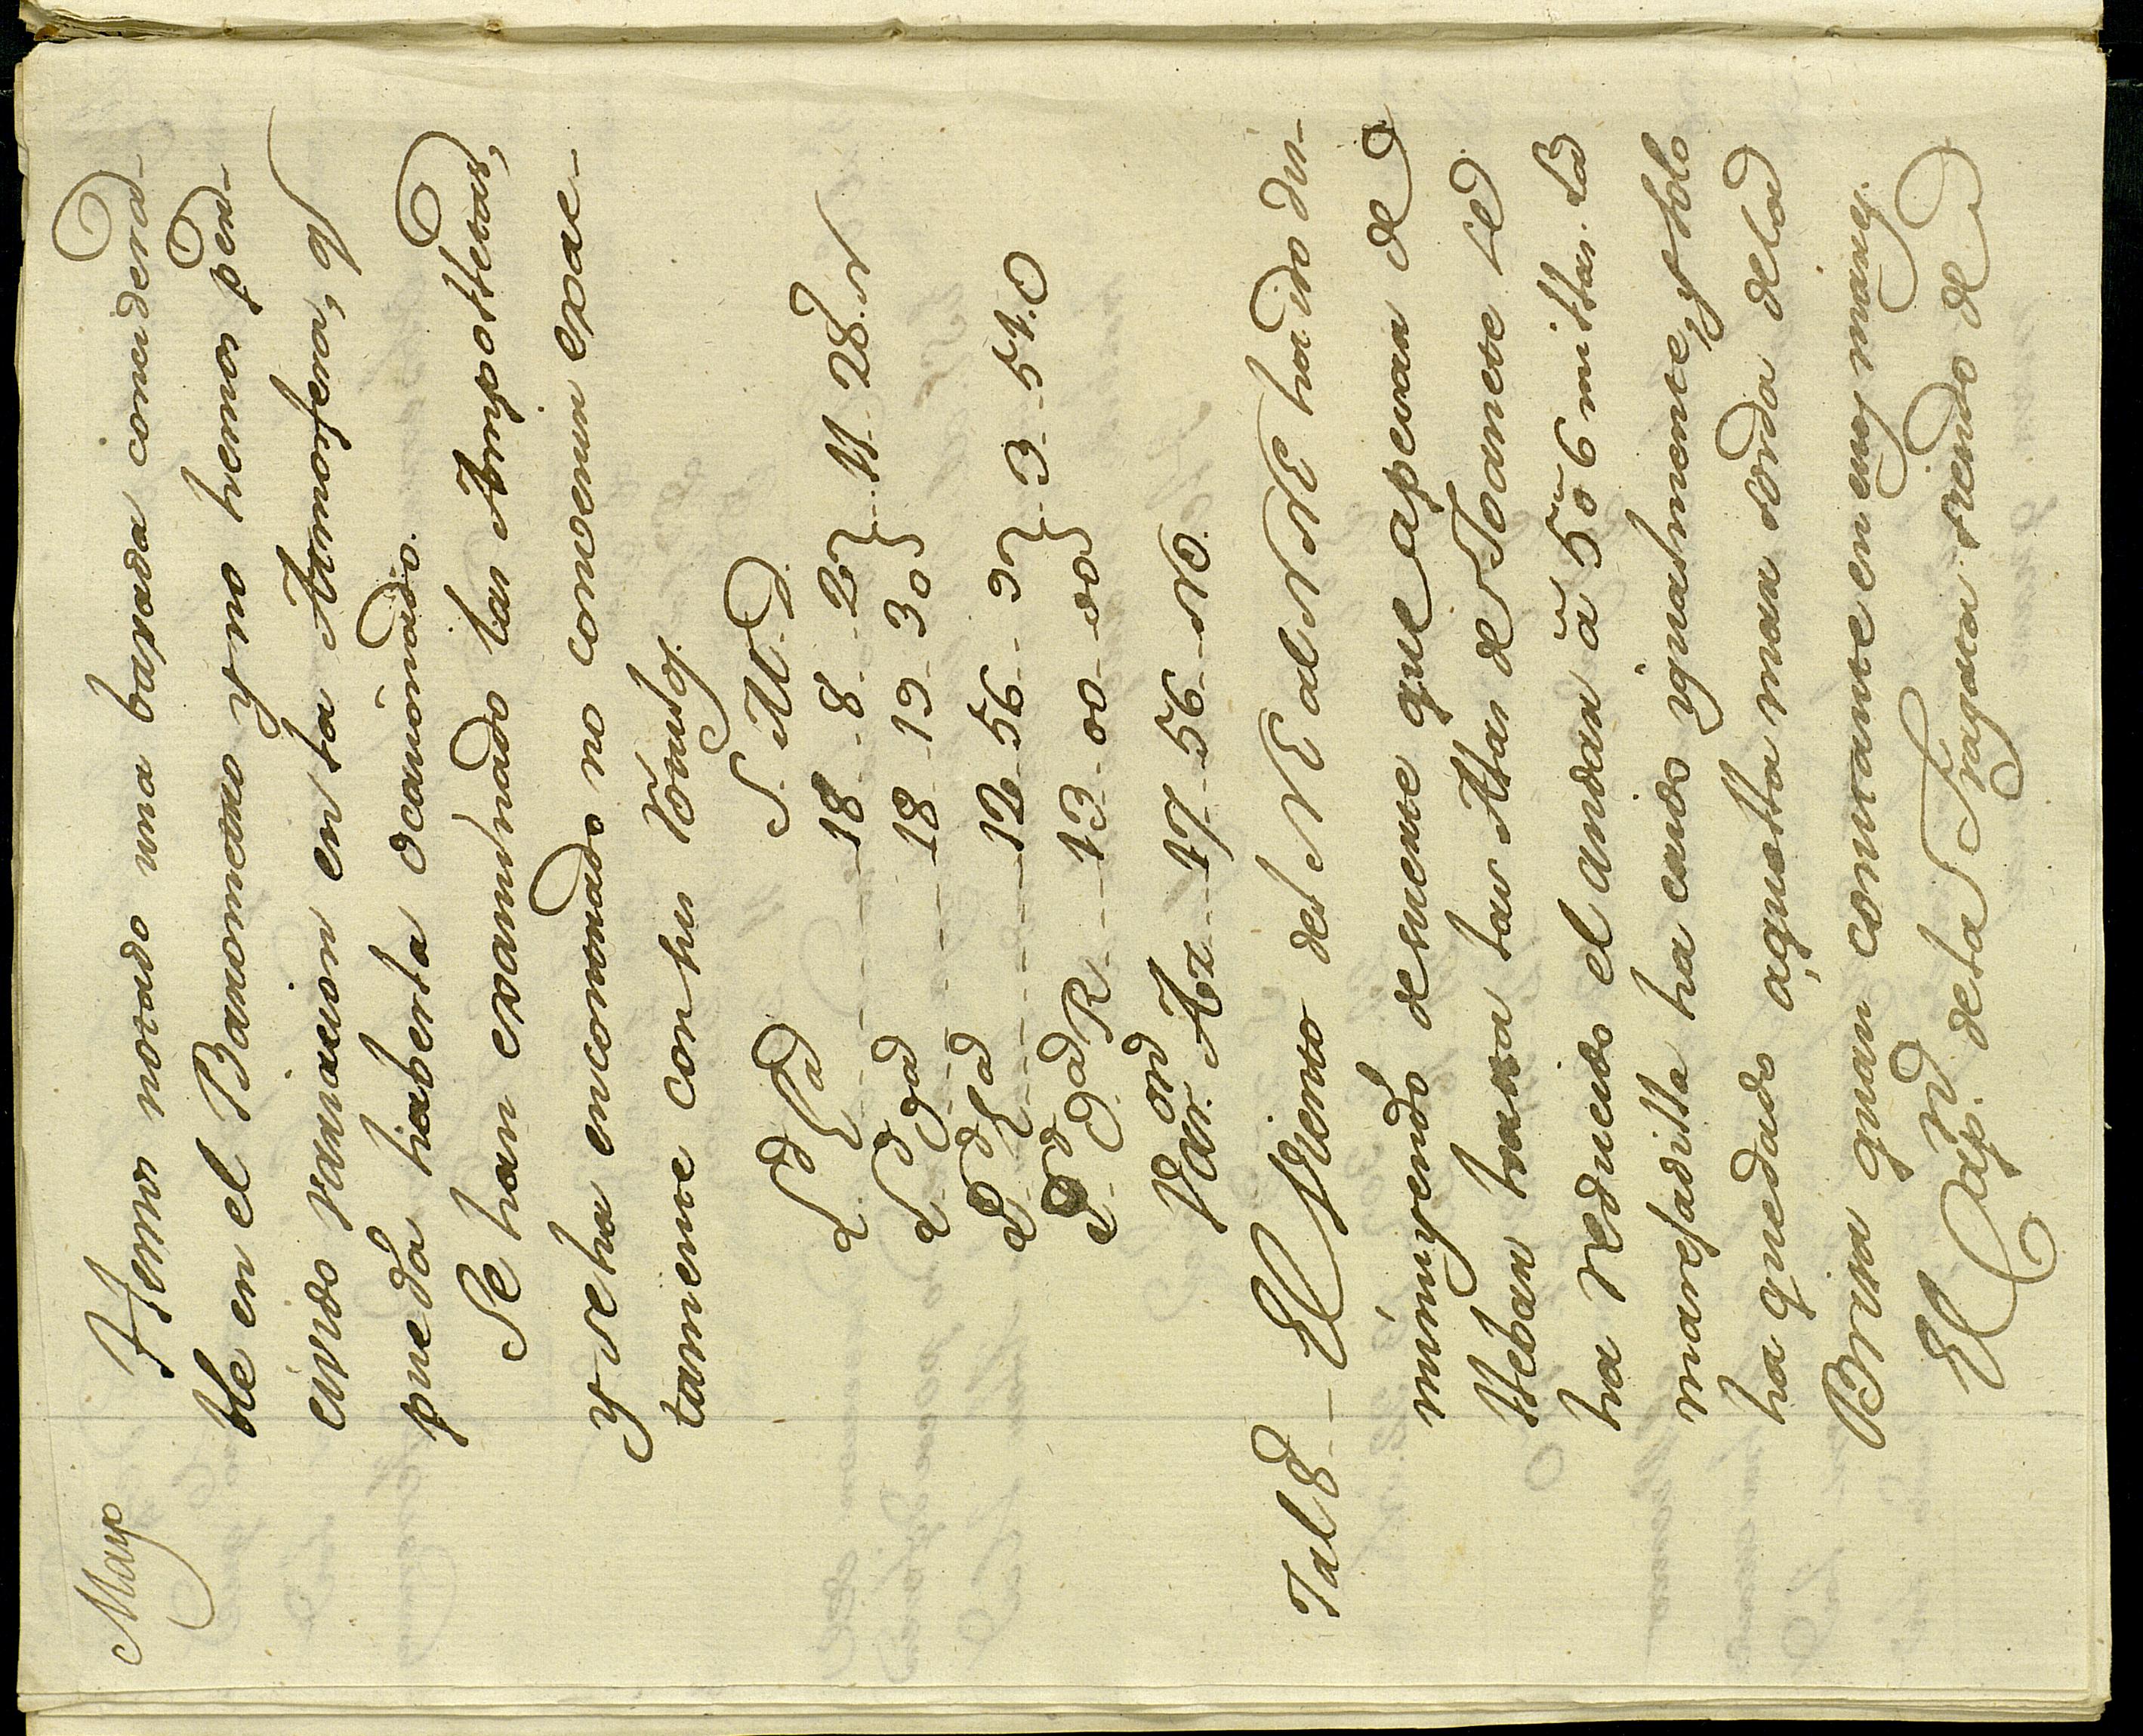 Mayo
Hemos notado una bajada considera-
ble en el Baronmetro y no hemos perci-
civido variacion en la Atmosfera, q
pueda haberla ocacionado.
Se han examinado las Ampolletas,
y se ha encontrado no convenir exac-
tamente con sus tómulos.
S M
18 - 8 - 2 } - 11 - 28.
18 - 19 - 30
12 - 56 - 9 } - 3 - 51. O
13 - 00 - 00
Var. Az - 17 - 56 - N
Tal 8 - El viento del NE al NNE ha ido di-
minuyendo de suerte que apenas de
lleban hasta las Alas de Toanete se
ha reducido el andar á 5 ó 6 millas. La
marejadilla ha caido ygualmente, y solo
ha quedado áquella mar sorda de las
Brisas quan constante en estos mares.
El Cap. de la Fragata siendo de